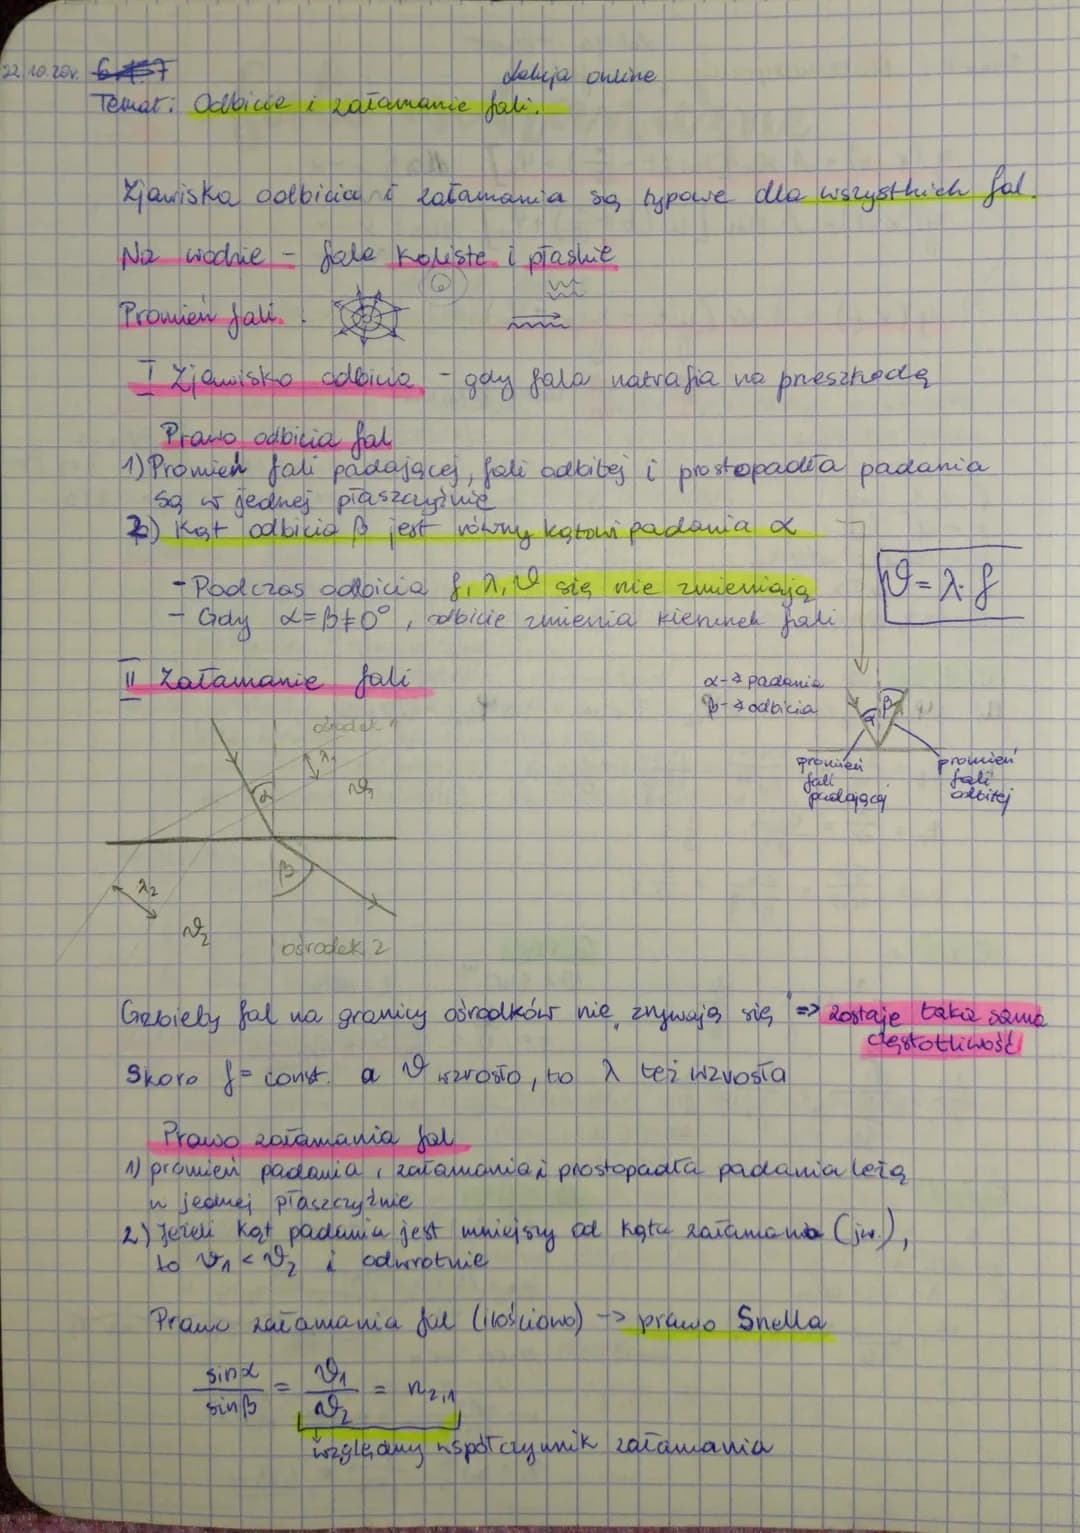 22.10.20r.
lekcja online
Temat: Odbicie i załamanie fali.
Zjawiska odbicia i załamania są typowe dla wszystkich fal.
Na wodzie - fale koliste i płaskie
Promień fali.
I Zjawisko odbicia - gdy fala natrafia na przeszkodę
Prawo odbicia fal
1) Promień fali padającej, fali odbitej i prostopadła padania
są w jednej płaszczyźnie
2) Kąt odbicia β jest równy kątowi padania α
- Podczas odbicia f, λ, ϑ się nie zmieniają
ϑ = λ · f
- Gdy α=β≠0°, odbicie zmienia kierunek fali
II Załamanie fali
α → padania
β → odbicia
α β
promień
fali
padającej
promień
fali
odbitej
ośrodek 1
λ₁
α
ϑ₁
β
λ₂
ϑ₂
ośrodek 2
Grzbiety fal na granicy ośrodków nie "zrywają się" => zostaje taka sama
częstotliwość
Skoro f = const. a ϑ wzrosło, to λ też wzrosła
Prawo załamania fal
1) promień padania, załamania i prostopadła padania leżą
w jednej płaszczyźnie
2) Jeżeli kąt padania jest mniejszy od kąta załamania (jw.),
to ϑ₁ < ϑ₂ i odwrotnie
Prawo załamania fal (ilościowo) -> prawo Snella
sinα/sinβ = ϑ₁/ϑ₂ = n₂,₁
względny współczynnik załamania